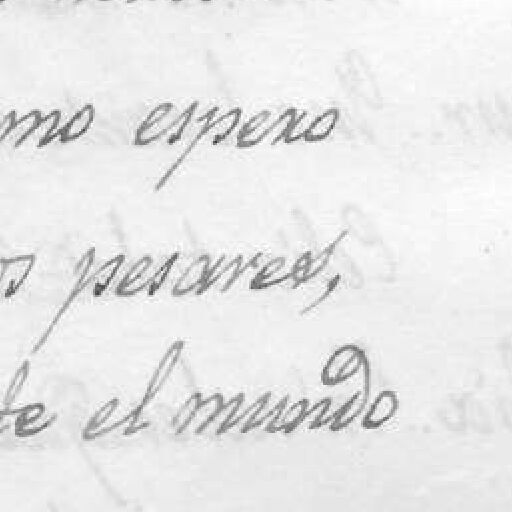 mo espero
os pesares,
te el mundo